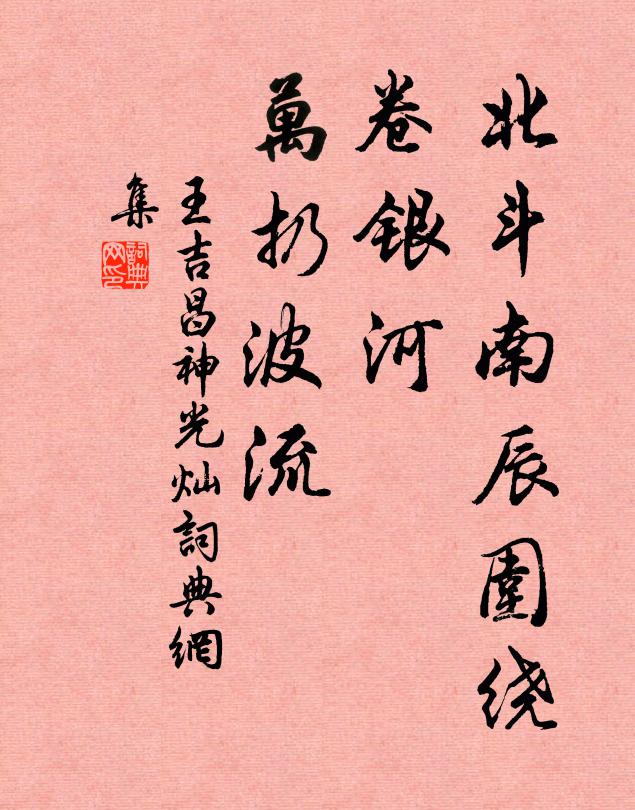 北斗南辰圍绕
卷银河
萬扔波流
王吉昌神光灿詞典網
集
詞典網印